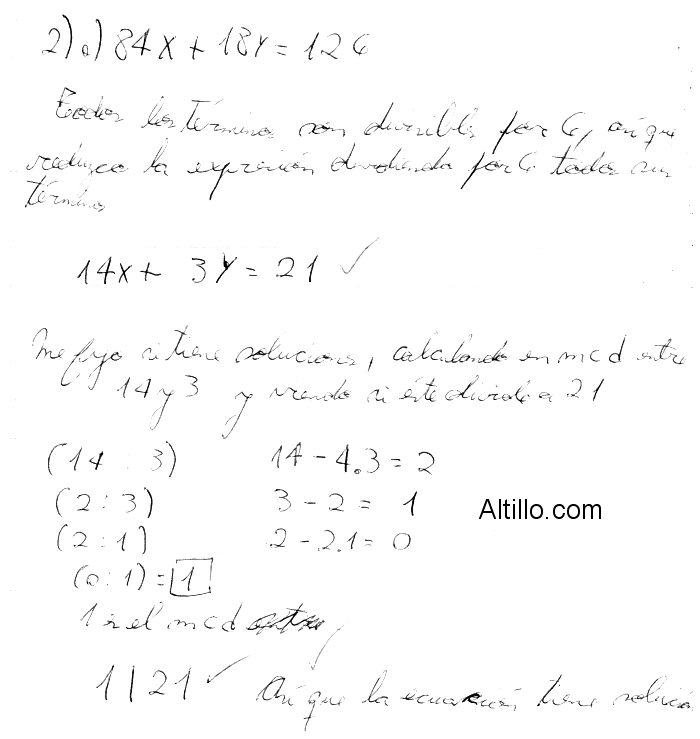 2) a) 84X + 18Y = 126
Todos los términos son divisibles por 6, así que
reduzco la expresión dividiendo por 6 todos sus
términos
14X + 3Y = 21 ✓
Me fijo si tiene soluciones, calculando en mcd entre
14 y 3 y viendo si éste divide a 21
(14 : 3) 14 - 4.3 = 2
(2 : 3) 3 - 2 = 1
(2 : 1) 2 - 2.1 = 0
(0 : 1) = 1
Altillo.com
1 es el mcd
1 | 21 ✓ Así que la ecuación, tiene solución